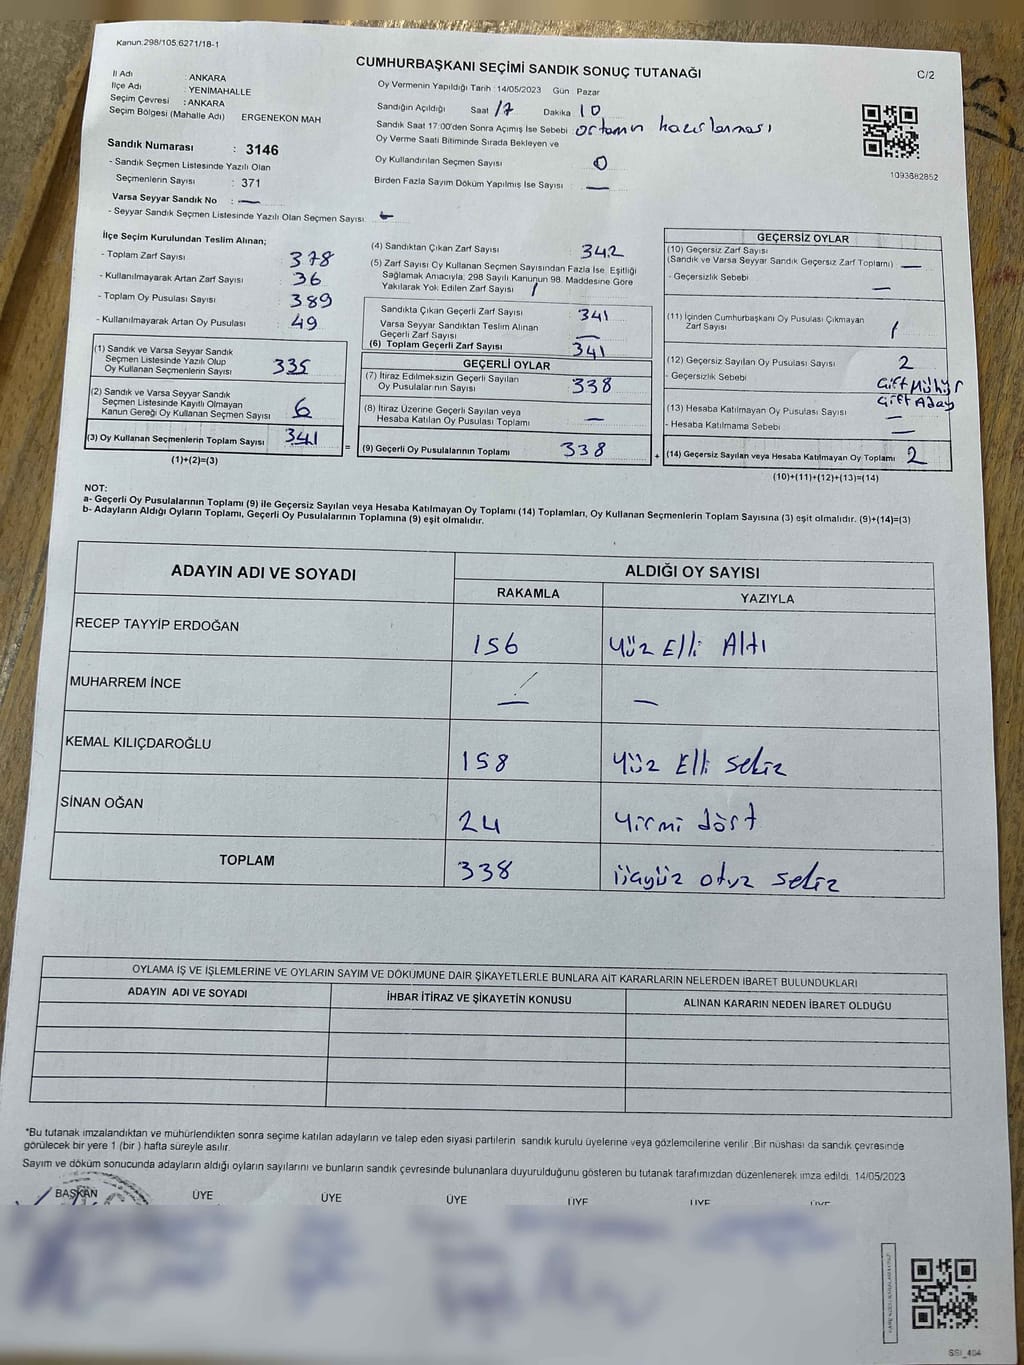 Kanun.298/105,6271/18-1
CUMHURBAŞKANI SEÇİMİ SANDIK SONUÇ TUTANAĞI
C/2
İl Adı : ANKARA
İlçe Adı : YENİMAHALLE
Seçim Çevresi : ANKARA
Seçim Bölgesi (Mahalle Adı) ERGENEKON MAH
Sandık Numarası : 3146
- Sandık Seçmen Listesinde Yazılı Olan
Seçmenlerin Sayısı : 371
Varsa Seyyar Sandık No : —
- Seyyar Sandık Seçmen Listesinde Yazılı Olan Seçmen Sayısı —
Oy Vermenin Yapıldığı Tarih :14/05/2023 Gün Pazar
Sandığın Açıldığı Saat 17 Dakika 10
Sandık Saat 17:00'den Sonra Açımış İse Sebebi : ortamın hazırlanması
Oy Verme Saati Bitiminde Sırada Bekleyen ve
Oy Kullandırılan Seçmen Sayısı 0
Birden Fazla Sayım Döküm Yapılmış İse Sayısı —
1093682852
İlçe Seçim Kurulundan Teslim Alınan;
- Toplam Zarf Sayısı 378
- Kullanılmayarak Artan Zarf Sayısı 36
- Toplam Oy Pusulası Sayısı 389
- Kullanılmayarak Artan Oy Pusulası 49
(1) Sandık ve Varsa Seyyar Sandık
Seçmen Listesinde Yazılı Olup
Oy Kullanan Seçmenlerin Sayısı 335
(2) Sandık ve Varsa Seyyar Sandık
Seçmen Listesinde Kayıtlı Olmayan
Kanun Gereği Oy Kullanan Seçmen Sayısı 6
(3) Oy Kullanan Seçmenlerin Toplam Sayısı 341
(1)+(2)=(3)
(4) Sandıktan Çıkan Zarf Sayısı 342
(5) Zarf Sayısı Oy Kullanan Seçmen Sayısından Fazla İse, Eşitliği
Sağlamak Amacıyla, 298 Sayılı Kanunun 98. Maddesine Göre
Yakılarak Yok Edilen Zarf Sayısı 1
Sandıkta Çıkan Geçerli Zarf Sayısı 341
Varsa Seyyar Sandıktan Teslim Alınan
Geçerli Zarf Sayısı —
(6) Toplam Geçerli Zarf Sayısı 341
GEÇERLİ OYLAR
(7) İtiraz Edilmeksizin Geçerli Sayılan
Oy Pusulalarının Sayısı 338
(8) İtiraz Üzerine Geçerli Sayılan veya
Hesaba Katılan Oy Pusulası Toplamı —
= (9) Geçerli Oy Pusulalarının Toplamı 338
GEÇERSİZ OYLAR
(10) Geçersiz Zarf Sayısı
(Sandık ve Varsa Seyyar Sandık Geçersiz Zarf Toplamı) —
- Geçersizlik Sebebi —
(11) İçinden Cumhurbaşkanı Oy Pusulası Çıkmayan
Zarf Sayısı 1
(12) Geçersiz Sayılan Oy Pusulası Sayısı 2
- Geçersizlik Sebebi Çift Mühür
Çift Aday
(13) Hesaba Katılmayan Oy Pusulası Sayısı —
- Hesaba Katılmama Sebebi —
+ (14) Geçersiz Sayılan veya Hesaba Katılmayan Oy Toplamı 2
(10)+(11)+(12)+(13)=(14)
NOT:
a- Geçerli Oy Pusulalarının Toplamı (9) ile Geçersiz Sayılan veya Hesaba Katılmayan Oy Toplamı (14) Toplamları, Oy Kullanan Seçmenlerin Toplam Sayısına (3) eşit olmalıdır. (9)+(14)=(3)
b- Adayların Aldığı Oyların Toplamı, Geçerli Oy Pusulalarının Toplamına (9) eşit olmalıdır.
ADAYIN ADI VE SOYADI ALDIĞI OY SAYISI
RAKAMLA YAZIYLA
RECEP TAYYİP ERDOĞAN 156 Yüz Elli Altı
MUHARREM İNCE — —
KEMAL KILIÇDAROĞLU 158 Yüz Elli sekiz
SİNAN OĞAN 24 Yirmi dört
TOPLAM 338 üçyüz otuz sekiz
OYLAMA İŞ VE İŞLEMLERİNE VE OYLARIN SAYIM VE DÖKÜMÜNE DAİR ŞİKAYETLERLE BUNLARA AİT KARARLARIN NELERDEN İBARET BULUNDUKLARI
ADAYIN ADI VE SOYADI İHBAR İTİRAZ VE ŞİKAYETİN KONUSU ALINAN KARARIN NEDEN İBARET OLDUĞU
*Bu tutanak imzalandıktan ve mühürlendikten sonra seçime katılan adayların ve talep eden siyasi partilerin sandık kurulu üyelerine veya gözlemcilerine verilir .Bir nüshası da sandık çevresinde
görülecek bir yere 1 (bir ) hafta süreyle asılır.
Sayım ve döküm sonucunda adayların aldığı oyların sayılarını ve bunların sandık çevresinde bulunanlara duyurulduğunu gösteren bu tutanak tarafımızdan düzenlenerek imza edildi. 14/05/2023
BAŞKAN ÜYE ÜYE ÜYE ÜYE ÜYE ÜYE